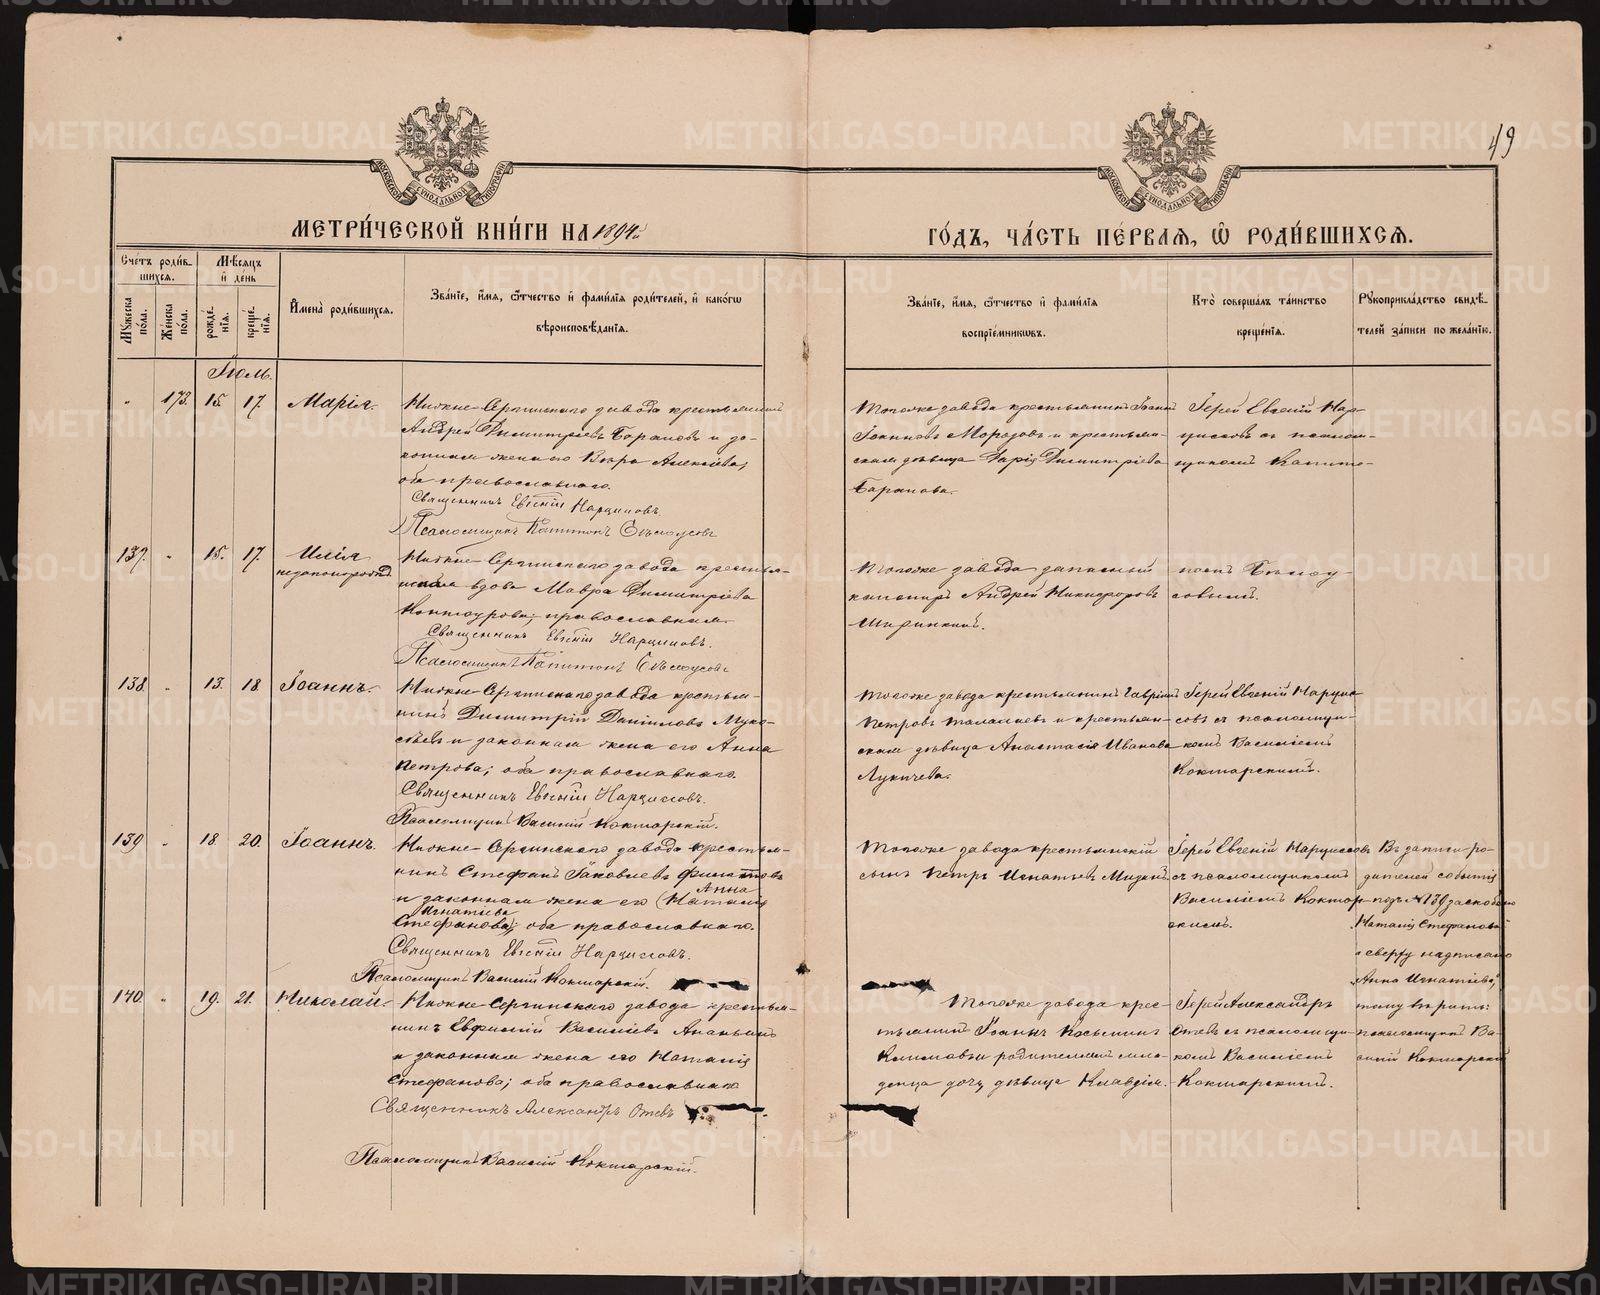 49
МОСКОВСКОЙ СѴНОДАЛЬНОЙ ТИПОГРАФІИ
МОСКОВСКОЙ СѴНОДАЛЬНОЙ ТИПОГРАФІИ
МЕТРИ́ЧЕСКОЙ КНИ́ГИ НА 1894й
ГО́ДЪ, ЧА́СТЬ ПЕ́РВАЯ, Ѡ РОДИ́ВШИХСЯ.
Сче́тъ роди́в-
шихся.
Мѣ́сяцъ
и́ де́нь
Му́жеска
по́ла.
Же́нска
по́ла.
рожде́-
нїя.
креще́-
нїя.
И҆мена̀ роди́вшихся.
Зва́нїе, и́мя, ѻ҆́тчество и҆ фами́лїя роди́телей, и҆ како́гѡ
вѣроисповѣ́данїя.
Зва́нїе, и́мя, ѻ҆́тчество и҆ фами́лїя
воспрїе́мникѡвъ.
Кто̀ соверша́лъ та́инство
креще́нїя.
Рꙋкоприкла́дство свидѣ́-
телей за́писи по жела́нїю.
Іюль.
" 173. 15. 17. Марія.
Нижне-Сергинского завода крестьянинъ
Андрей Димитріевъ Барановъ и за-
конная жена его Вѣра Алексѣева;
оба православнаго.
Священникъ Евгеній Нарциссовъ.
Псаломщикъ Капитонъ Бѣлоусовъ
Тогоже завода крестьянинъ Іоаннъ
Іоанновъ Морозовъ и крестьян-
ская дѣвица Дарія Димитріева
Баранова.
Іерей Евгеній Нар-
циссовъ съ псалом-
щикомъ Капито-
137. " 15. 17. Илія
незаконорожд.
Нижне-Сергинского завода крестья-
нская вдова Мавра Димитріева
православная.
Священникъ Евгеній Нарциссовъ.
Псаломщикъ Капитонъ Бѣлоусовъ
Тогоже завода запасный
Андрей Никифоровъ
Ширинкинъ.
номъ Бѣлоу-
совымъ.
138. " 13. 18. Іоаннъ.
Нижне-Сергинского завода крестья-
нинъ Димитрій Даніиловъ Муко-
сѣевъ и законная жена его Анна
Петрова; оба православнаго.
Священникъ Евгеній Нарциссовъ.
Псаломщикъ Василій Кокшарскій.
Тогоже завода крестьянинъ Гавріилъ
Петровъ Талалаевъ и крестьян-
ская дѣвица Анастасія Иванова
Лукичева.
Іерей Евгеній Нарцис-
совъ съ псаломщи-
комъ Василіемъ
Кокшарскимъ.
139 " 18. 20. Іоаннъ.
Нижне-Сергинского завода крестья-
нинъ Стефанъ Іаковлевъ Филатовъ
Анна
и законная жена его (Наталія
Игнатіева
Стефанова); оба православнаго.
Священникъ Евгеній Нарциссовъ.
Псаломщикъ Василій Кокшарскій.
Тогоже завода крестьянскій
сынъ Петръ Игнатьевъ
Іерей Евгеній Нарциссовъ
съ псаломщикомъ
Василіемъ Кокшар-
скимъ.
Въ записи ро-
дителей событія
подъ № 139 заскоблено
Наталія Стефанова
а сверху надписано
"Анна Игнатіева",
тому вѣрить:
псаломщикъ Ва-
силій Кокшарскій
140 " 19. 21. Николай.
Нижне-Сергинского завода крестья-
нинъ Евфимій Василіевъ Ананьинъ
и законная жена его Наталія
Стефанова; оба православнаго
Священникъ Александръ Отевъ
Псаломщикъ Василій Кокшарскій.
Тогоже завода крес-
тьянинъ Іоаннъ Косьминъ
Климовъ и родителей мла-
денца дочь дѣвица Клавдія.
Іерей Александръ
Отевъ съ псаломщи-
комъ Василіемъ
Кокшарскимъ.
METRIKI.GASO-URAL.RU